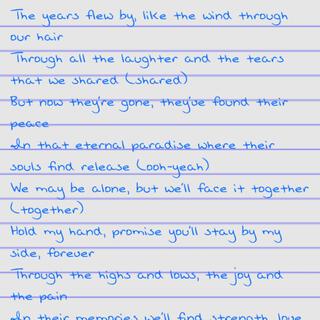 The years flew by, like the wind through
our hair
Through all the laughter and the tears
that we shared (shared)
But now they're gone, they've found their
peace
In that eternal paradise where their
souls find release (ooh-yeah)
We may be alone, but we'll face it together
(together)
Hold my hand, promise you'll stay by my
side, forever
Through the highs and lows, the joy and
the pain
In their memories we'll find strength, love